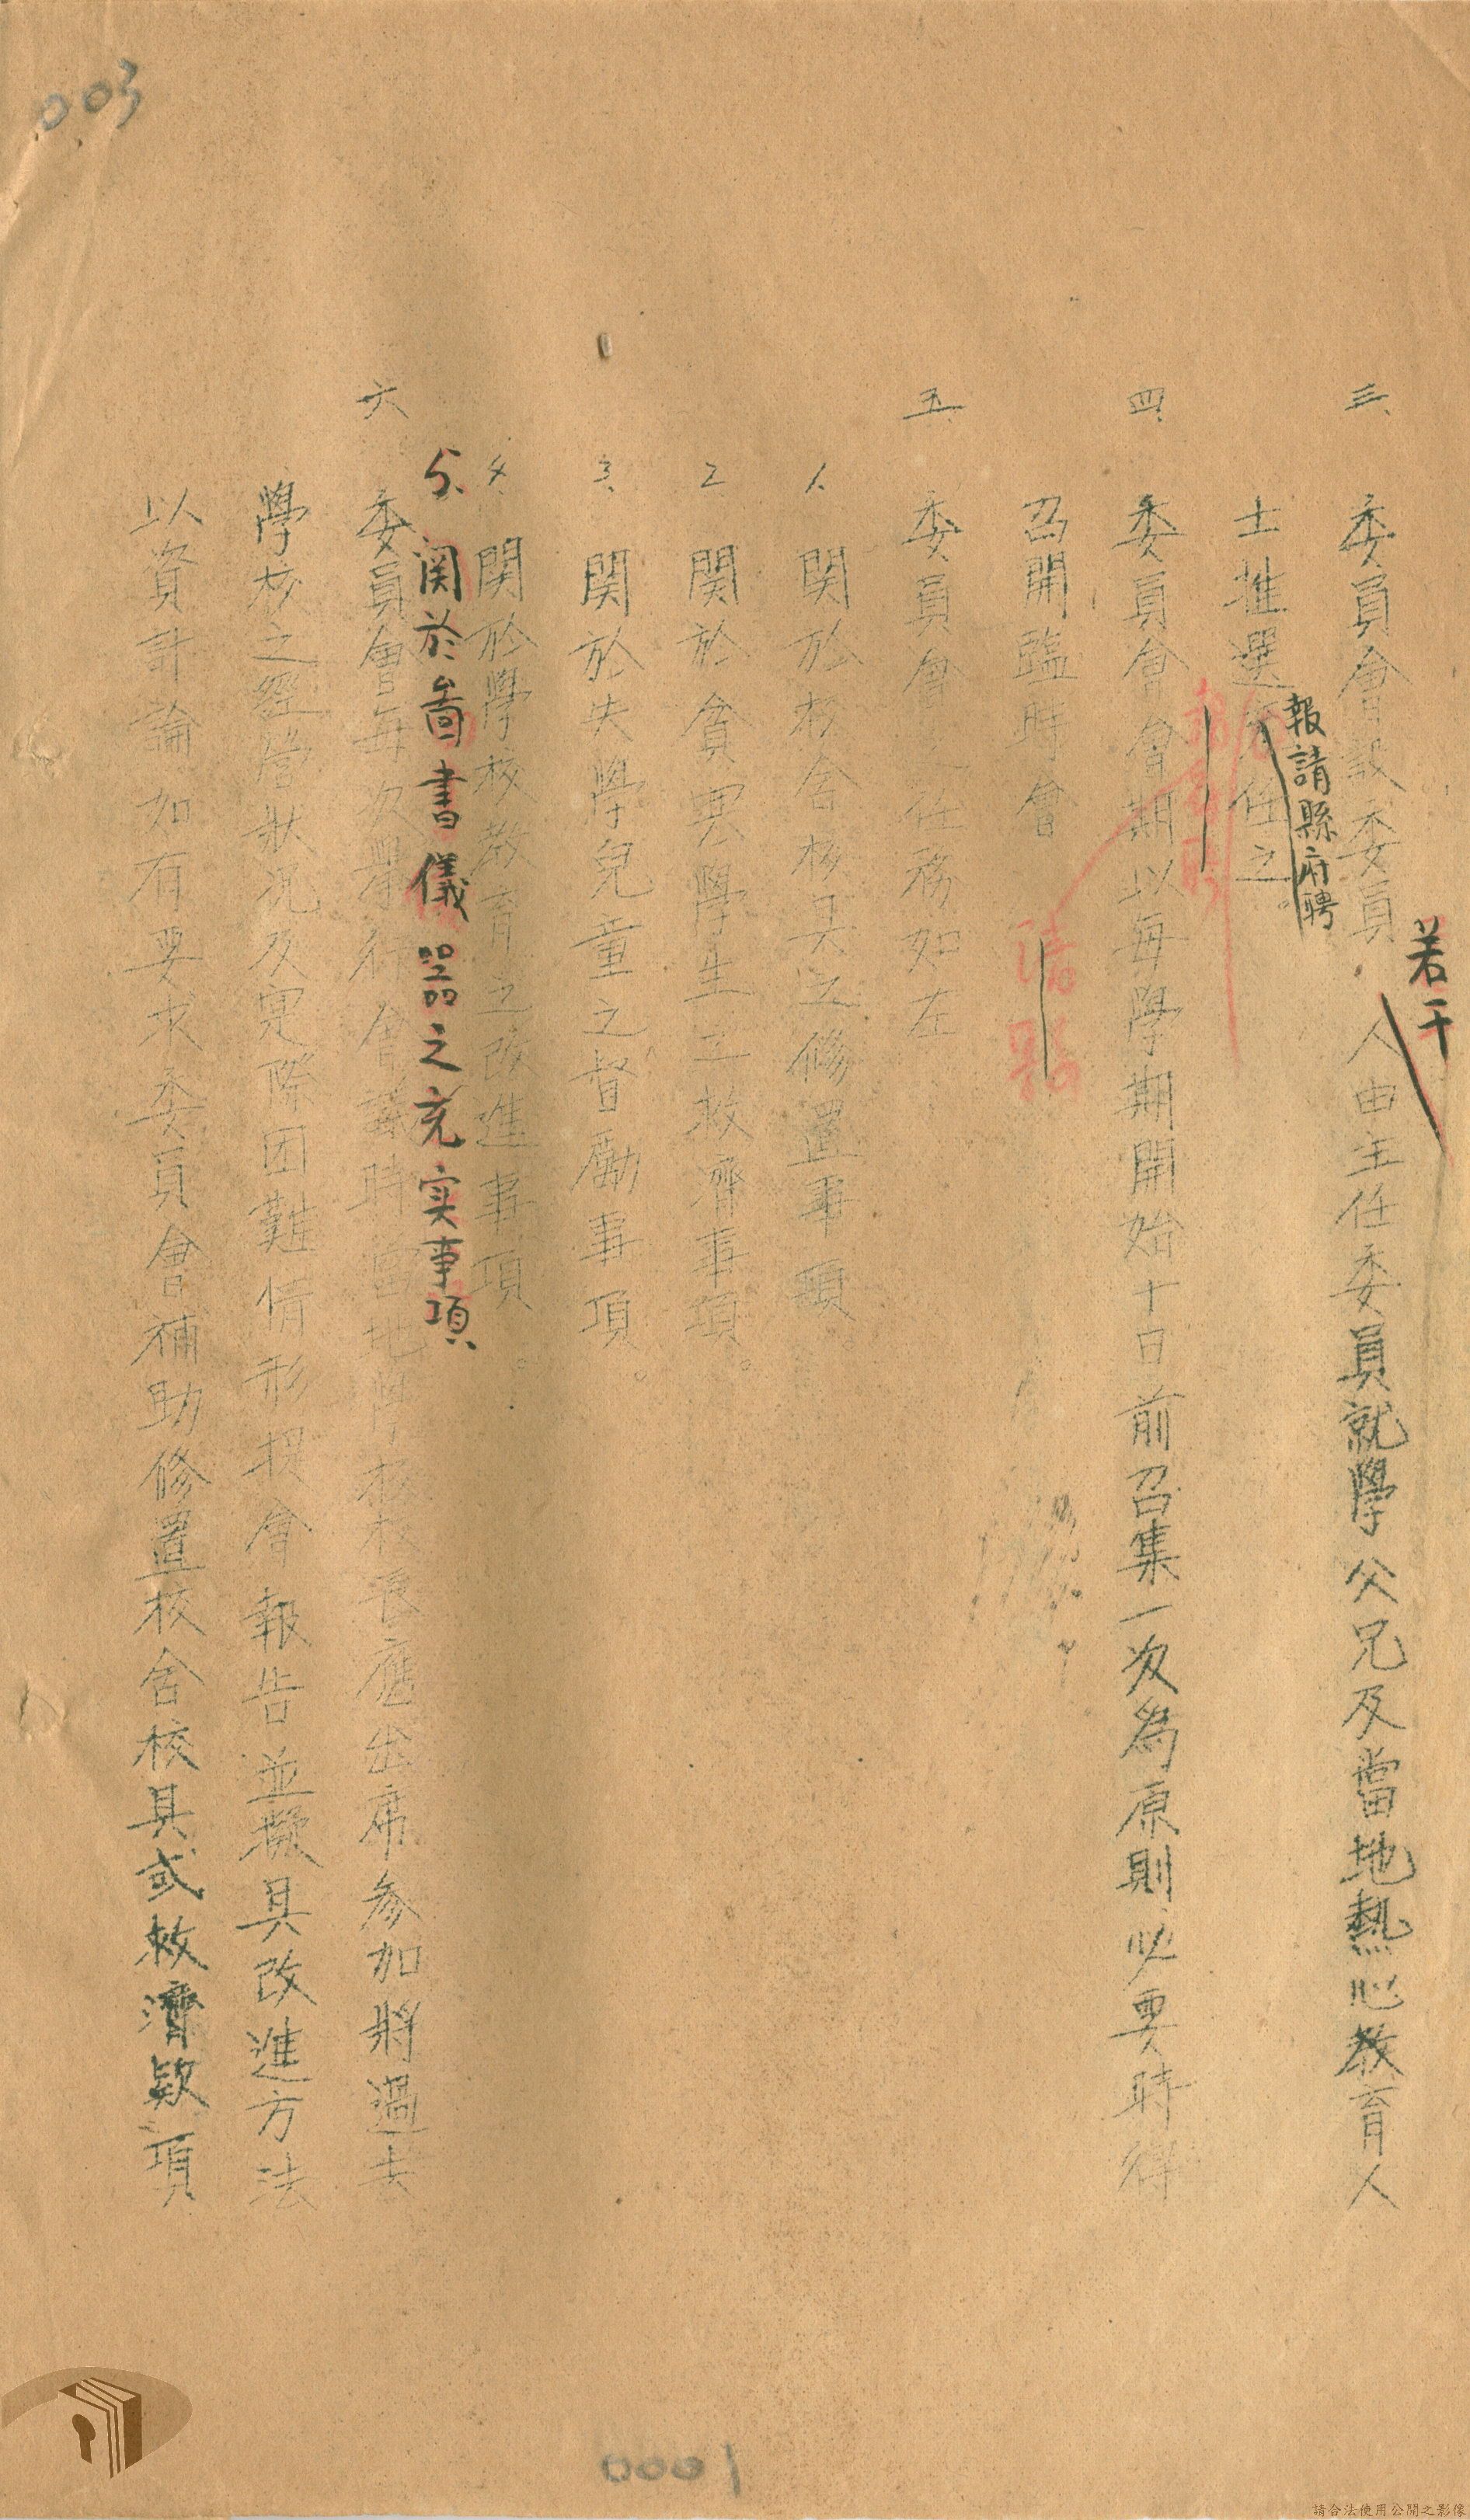 003
若干
三、委員會設委員 人由主任委員就學父兄及當地熱心教育人
報請縣府聘
士推選 任之。
四、委員會會期以每學期開始十日前召集一次為原則必要時得
召開臨時會
五、委員會任務如左
1. 関於校舍校具之修置事項。
2. 関於貧寒學生之救濟事項。
3. 関於失學兒童之督勵事項。
4. 関於學校教育之改進事項。
5. 関於啚書儀器之充实事項、
六 委員會每次舉行會議時當地學校校長應出席參加將過去
學校之經營狀況及实際困難情形提會報告並擬具改進方法
以資討論如有要求委員會補助修置校舍校具或救濟欵項
0001
請合法使用公開之影像